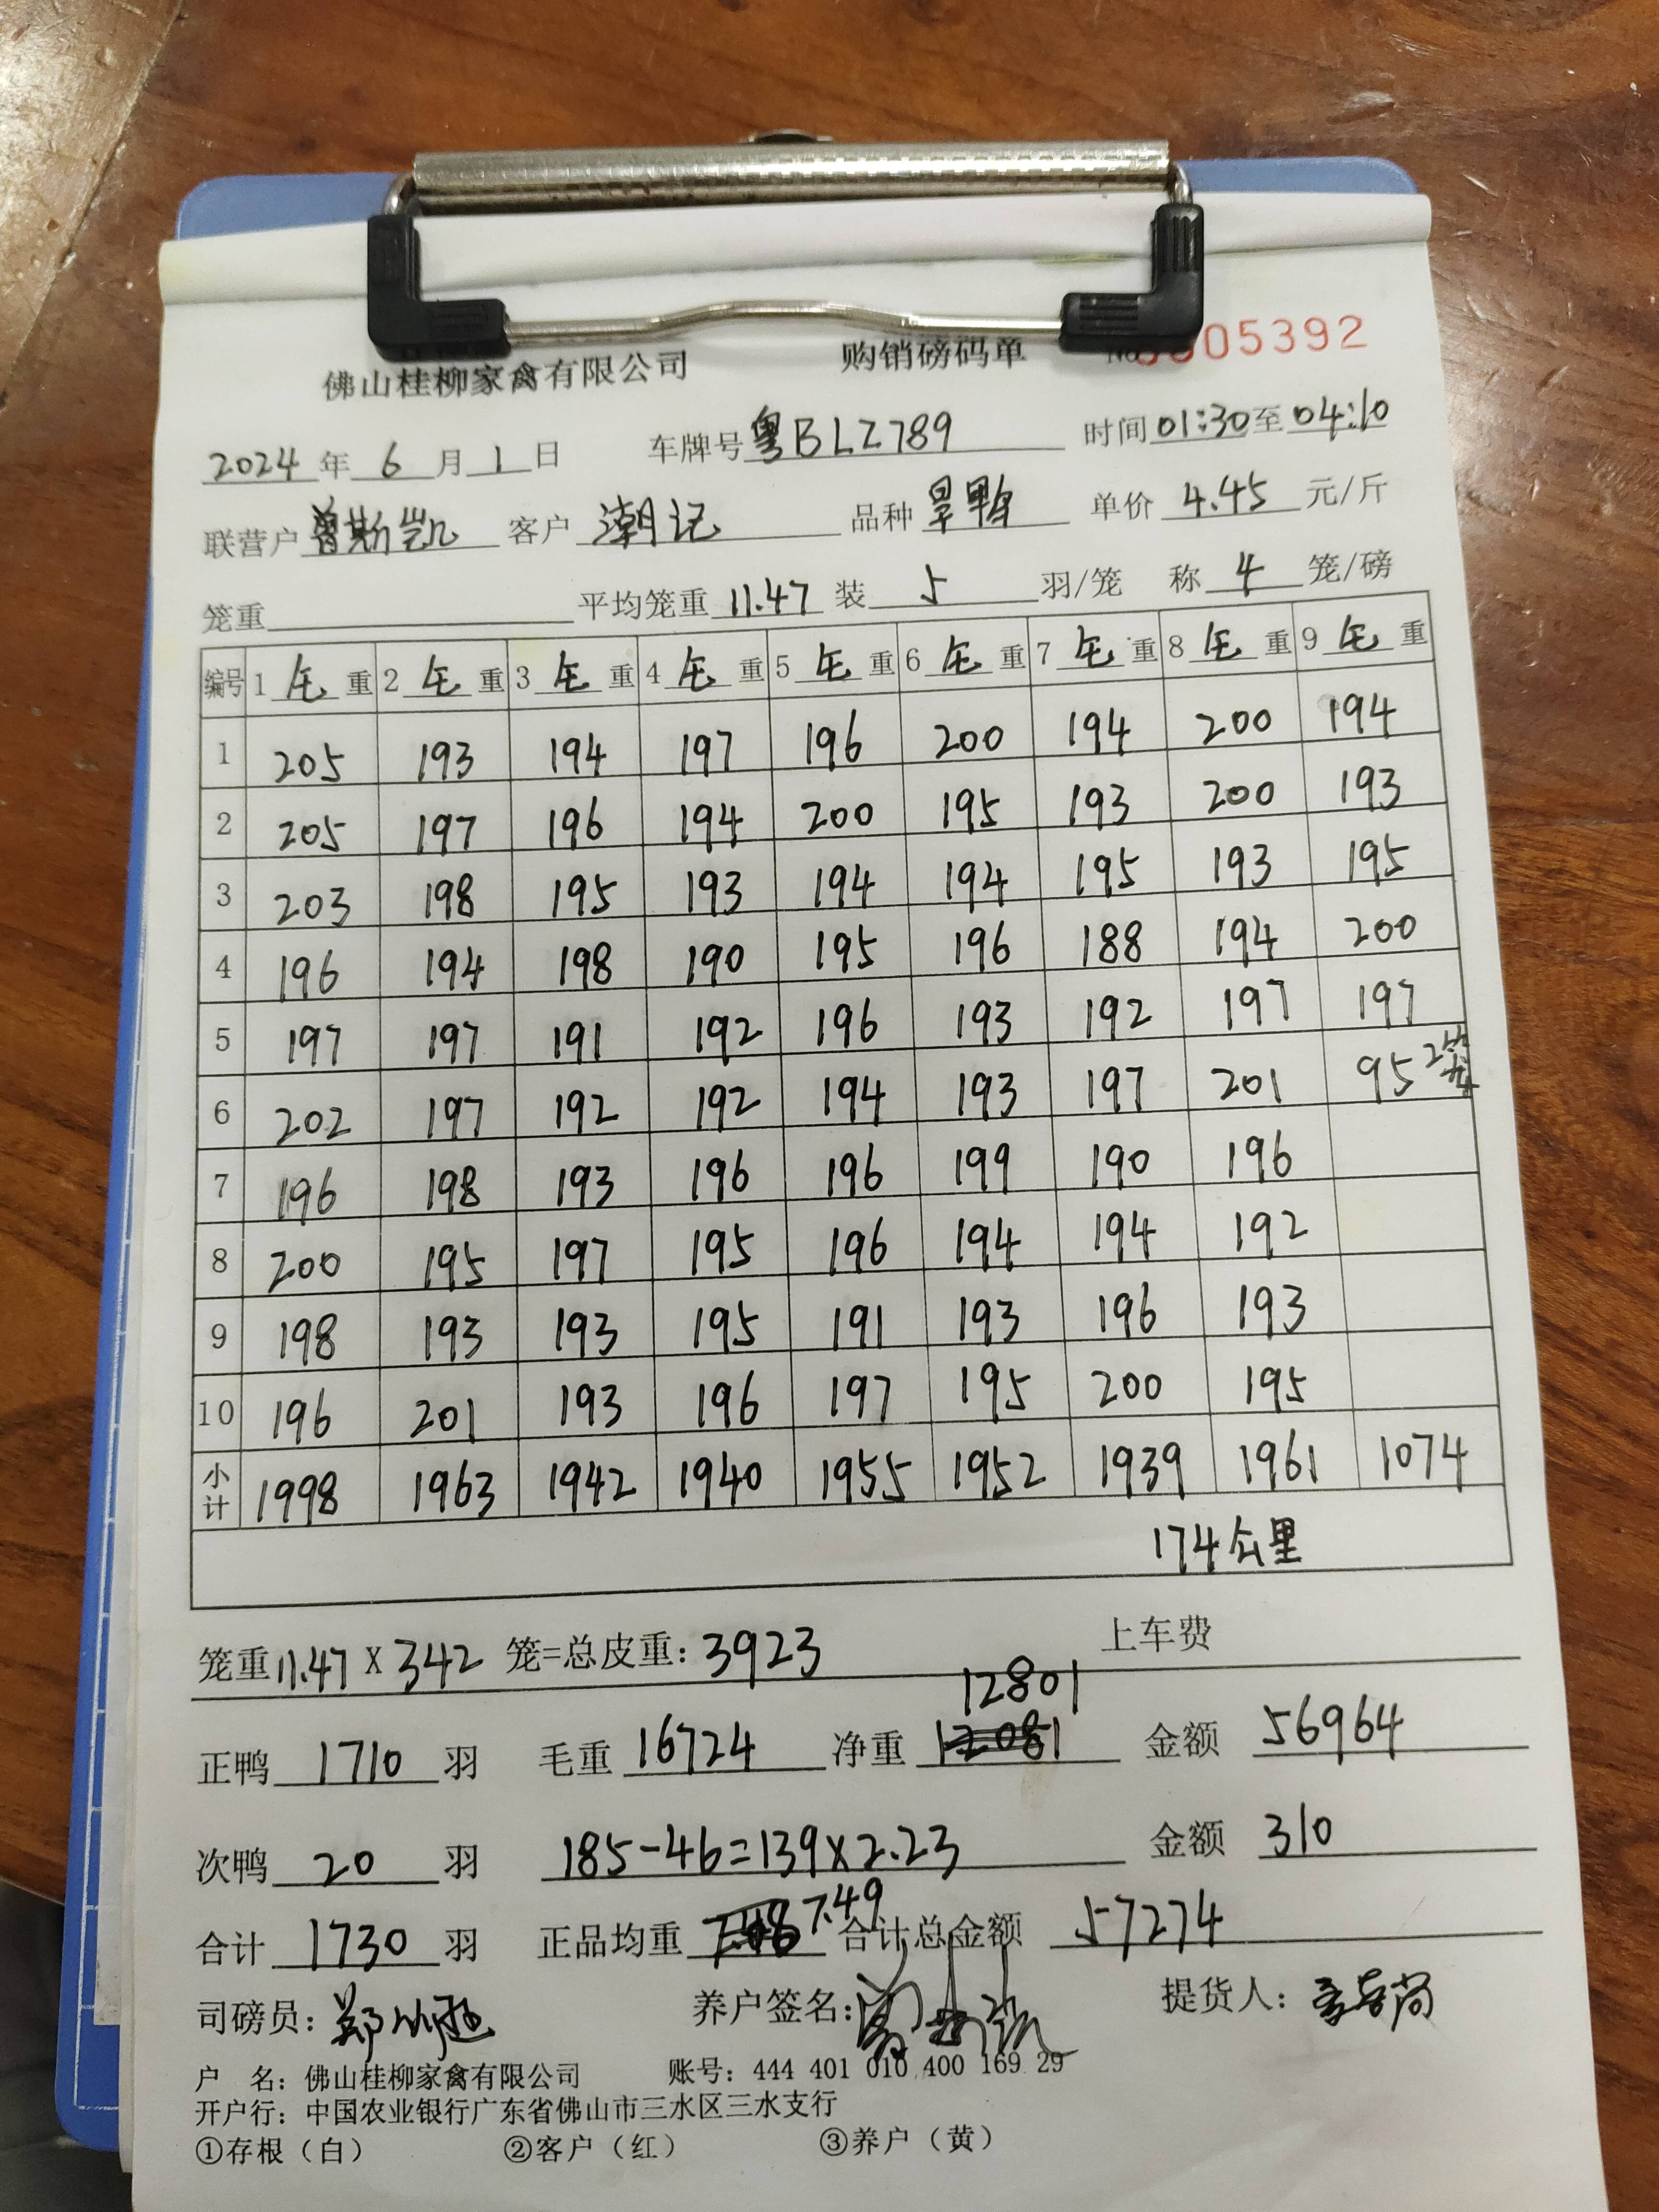 佛山桂柳家禽有限公司 购销磅码单 No 005392
2024年6月1日 车牌号粤BLZ789 时间01:30至04:10
联营户曾斯凯 客户潮记 品种旱鸭 单价4.45元/斤
笼重 平均笼重11.47 装5羽/笼 称4笼/磅
编号 1毛重 2毛重 3毛重 4毛重 5毛重 6毛重 7毛重 8毛重 9毛重
1 205 193 194 197 196 200 194 200 194
2 205 197 196 194 200 195 193 200 193
3 203 198 195 193 194 194 195 193 195
4 196 194 198 190 195 196 188 194 200
5 197 197 191 192 196 193 192 197 197
6 202 197 192 192 194 193 197 201 95 2笼
7 196 198 193 196 196 199 190 196
8 200 195 197 195 196 194 194 192
9 198 193 193 195 191 193 196 193
10 196 201 193 196 197 195 200 195
小计 1998 1963 1942 1940 1955 1952 1939 1961 1074
174公里
笼重11.47X342笼=总皮重:3923 上车费
正鸭1710羽 毛重16724 净重12801 金额56964
次鸭20羽 185-46=139X2.23 金额310
合计1730羽 正品均重7.49 合计总金额57274
司磅员: 郑 养户签名: 提货人:
户 名: 佛山桂柳家禽有限公司 账号: 444 401 010 400 169 29
开户行: 中国农业银行广东省佛山市三水区三水支行
①存根（白） ②客户（红） ③养户（黄）